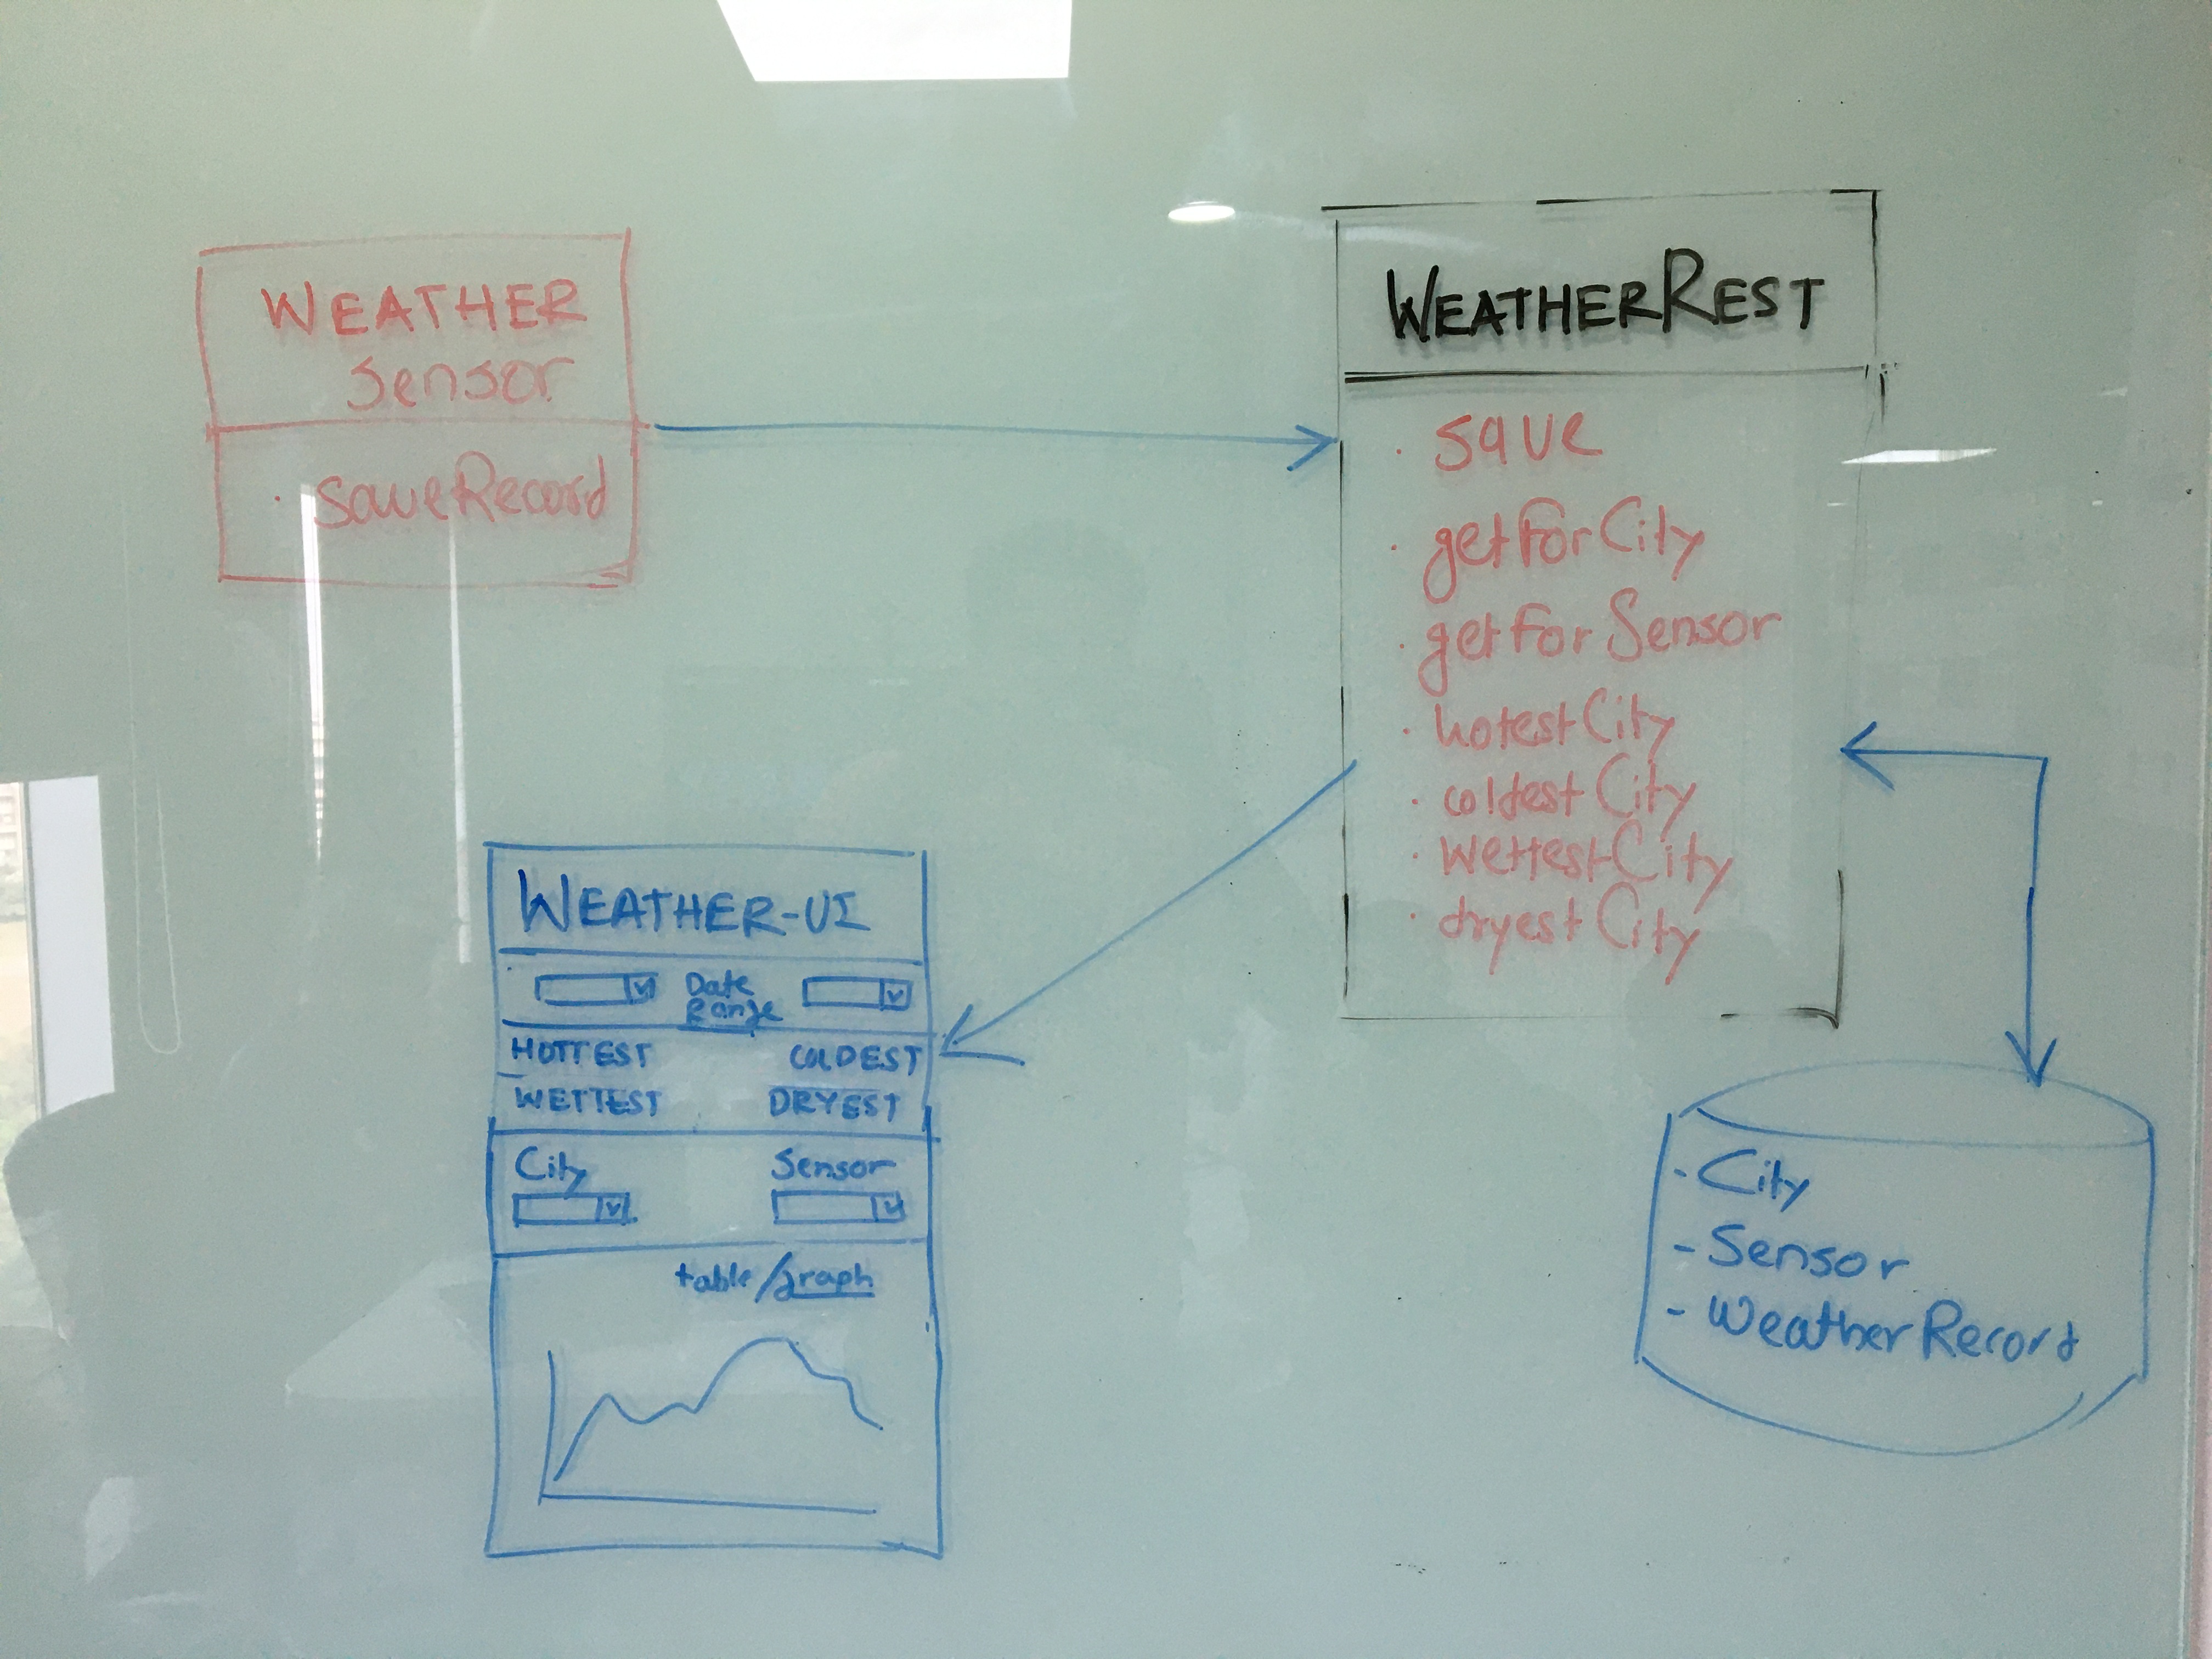 WEATHER
Sensor
· saveRecord
WEATHERREST
· save
· getForCity
· getForSensor
· hotestCity
· coldestCity
· wettestCity
· dryestCity
WEATHER-UI
Date
Range
HOTTEST COLDEST
WETTEST DRYEST
City Sensor
table/graph
- City
- Sensor
- WeatherRecord